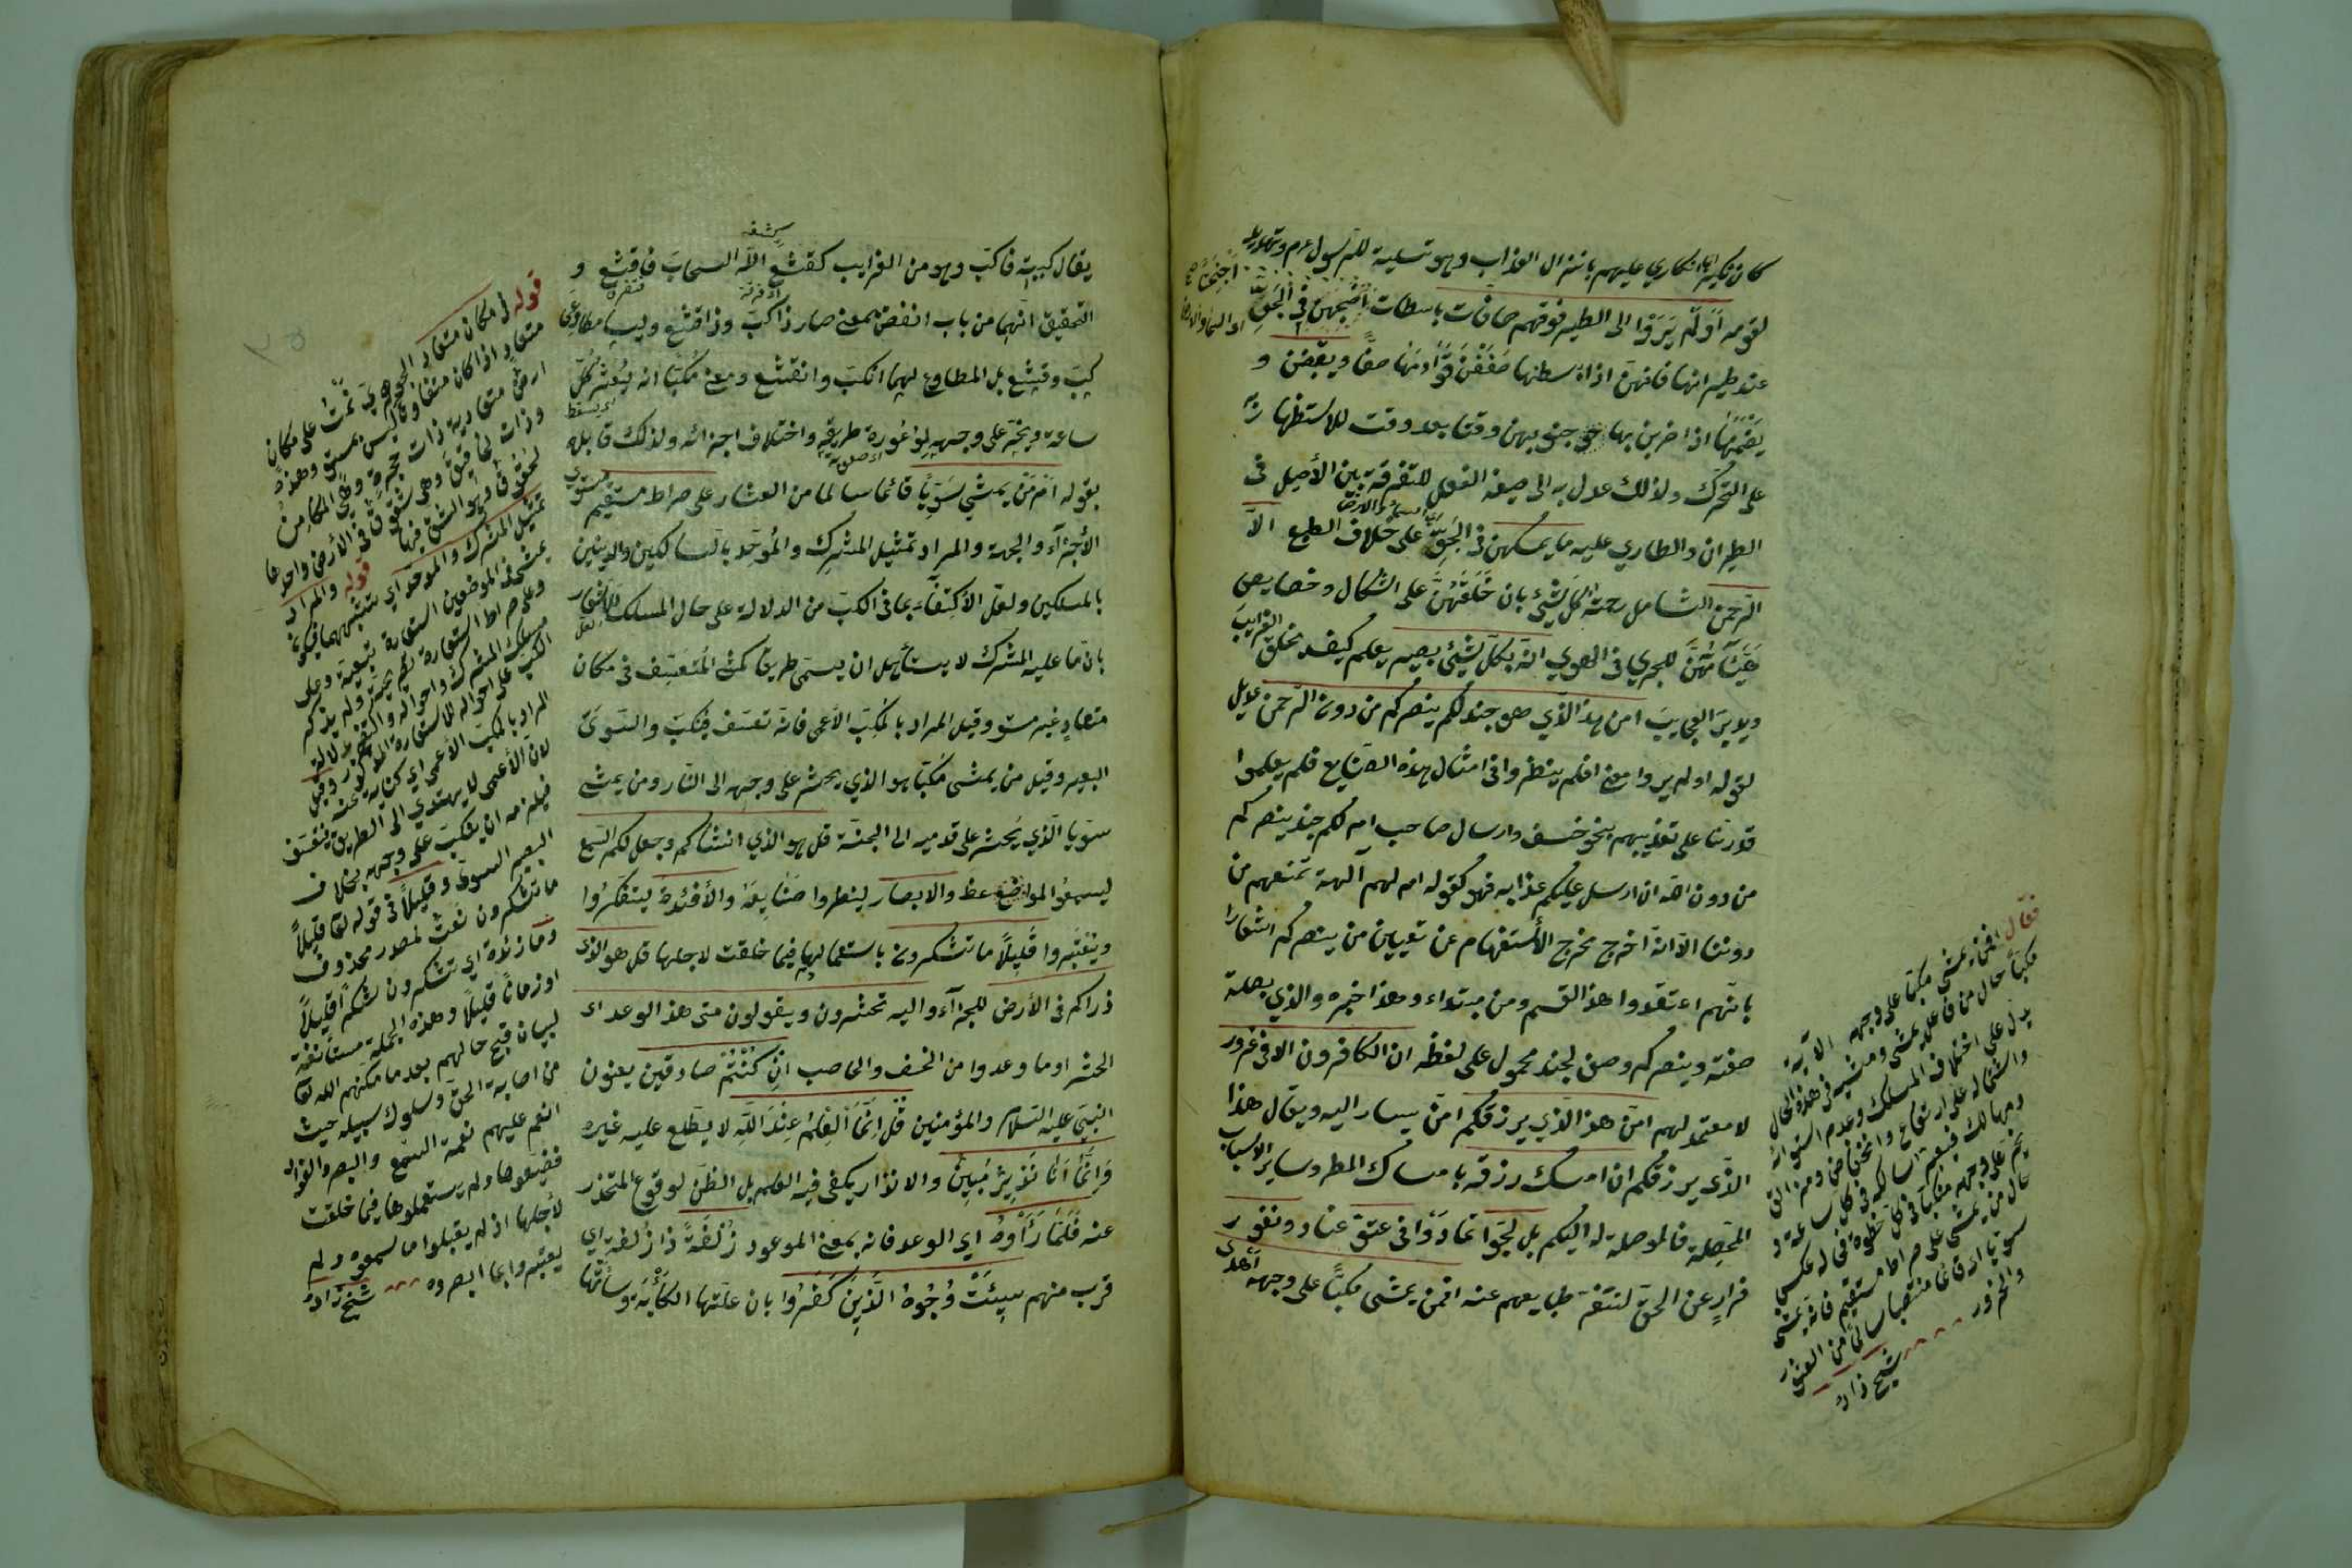 كان نكير انكاري عليهم بانزال العذاب وهو تسلية للرسول عم وتهديد
لقومه أولم يروا الى الطير فوقهم صافات باسطات أجنحهن في الجو
أجنحتهن صح
عند طيرانها فانهن اذا بسطنها صففن قوادمها صفا ويقبضن و
يضممنها اذا ضربن بها جنوبهن وقتا بعد وقت للاستظهار به
على التحرك ولذلك عدل به الى صيغة الفعل للتفرقة بين الأصيل فى
الطيران والطاري عليه ما يمسكهن في الجو على خلاف الطبع الا
الرحمن الشامل رحمته كل شئ بان خلقهن على اشكال وخصايص
هيئاتهن للجري فى الهوى انه بكل شئ بصير يعلم كيف يخلق الغرايب
ويدبر العجايب امن هذا الذي هو جند لكم ينصركم من دون الرحمن عديل
لقوله اولم يروا معنى افلم ينظروا فى امثال هذه الصنايع فلم يعلموا
قدرتنا على تعذيبهم بنحو خسف وارسال حاصب ام لكم جند ينصركم
من دون الله ان ارسل عليكم عذابه فهو كقوله ام لهم آلهة تمنعهم من
دوننا الا انه اخرج مخرج الأستفهام عن تعيين من ينصركم اشعارا
بانهم اعتقدوا هذا القسم ومن مبتداء وهذا خبره والذي بصلته
صفته وينصركم وصف لجند محمول على لفظه ان الكافرون الا فى غرور
لا معتمد لهم امن هذا الذي يرزقكم امن يسار اليه ويقال هذا
الذي يرزقكم ان امسك رزقه بامساك المطر وساير الاسباب
المحصلة فالموصلة له اليكم بل لجوا تمادوا فى عتو عناد ونفور
فرار عن الحق لتنفر طبايعهم عنه افمن يمشى مكبا على وجهه أهدى
فقال افمن يمشي مكبا على وجهه الآية
مكبا حال من فاعل يمشى ومشيه فى هذه الحال
يدل على اختلاف المسلك وعدم استوائه
واشتماله على ارتفاع وانخفاض
حال من يمشى على صراط مستقيم فانه يمشى
سويا اى قائما منتصبا سالما من العثور
والخرور شيخ زاده
يقال كببته فاكب وهو من الغرايب كقشع الله السحاب فاقشع و
التحقيق انهما من باب انفض بمعنى صار ذا كب وذا قشع وليسا مطاوعى
كب وقشع بل المطاوع لهما انكب وانقشع ومعنى مكبا انه يعثر كل
ساعة ويخر على وجهه لوعورة طريقه واختلاف اجزائه ولذلك قابله
بقوله امن يمشي سويا قائما سالما من العثار على صراط مستقيم مستوى
الأجزآء والجهة والمراد تمثيل المشرك والموحد بالسالكين والدينين
بالمسلكين ولعل الأكتفاء بما فى الكب من الدلالة على حال المسلك للاشعار
بان ما عليه المشرك لا يستأهل ان يسمى طريقا كمشى المتعسف فى مكان
متعاد غير مستو وقيل المراد بالمكب الأعمى فانه تعسف فينكب والسوى
البصير وقيل من يمشى مكبا هو الذي يحشر على وجهه الى النار ومن يمشى
سويا الذي يحشر على قدميه الى الجنة قل هو الذي انشاكم وجعل لكم السمع
ليسمعوا المواعظ والابصار لينظروا صنايعه والأفئدة ليتفكروا
ويعتبروا قليلا ما تشكرون باستعمالها فيما خلقت لاجلها قل هو الذى
ذراكم فى الأرض للجزآء واليه تحشرون ويقولون متى هذا الوعد اى
الحشر او ما وعدوا من الخسف والحاصب ان كنتم صادقين يعنون
النبى عليه السلام والمؤمنين قل انما العلم عند الله لا يطلع عليه غيره
وانما انا نذير مبين والانذار يكفى فيه العلم بل الظن لوقوع المحذر
عنه فلما رأوه اي الوعد فانه بمعنى الموعود زلفة ذا زلفة اي
قرب منهم سيئت وجوه الذين كفروا بان علتها الكآبة وسائتها
قوله فى مكان متعاد
متعاد اذا كان متفاوتا ليس بمستو وهذه
ارض متعادية ذات
تمثيل المشرك والموحد
قوله والمراد
المراد بالمكب الأعمى
لان الأعمى لا يهتدي الى الطريق فيعتسف
فيلزمه ان ينكب على وجهه بخلاف
البصير السوى وقليلا فى قوله تعا قليلا
ما تشكرون نعت لمصدر محذوف
وما زائدة اي تشكرون شكرا قليلا
او زمانا قليلا وهذه الجملة مستأنفة
لبيان قبح حالهم بعد ما مكنهم الله تعا
من اصابة الحق وسلوك سبيله حيث
انعم عليهم نعمة السمع والبصر والفؤاد
فضيعوها ولم يستعملوها فيما خلقت
لأجلها اذ لم يقبلوا ما سمعوه ولم
يعتبروا بما ابصروه شيخ زاده